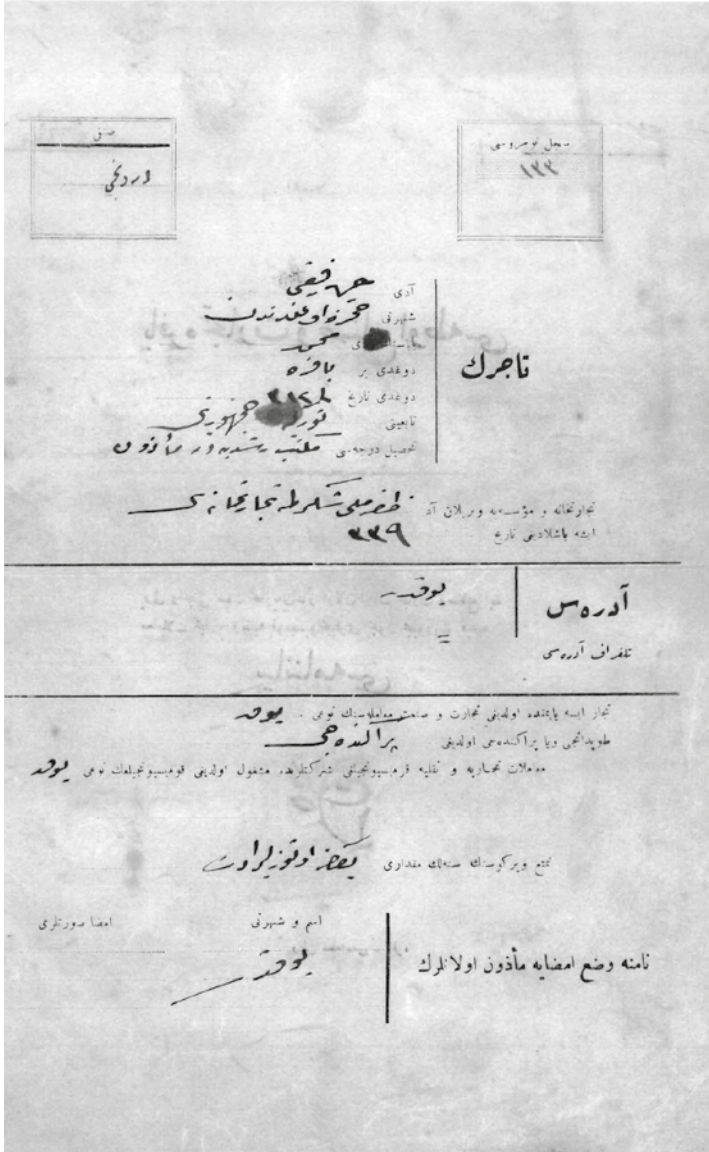 سجل نومروسی
۱۳۳
صنفی
دردنجی
تاجرك
آدی
شهرتی
محمد
دوغدی یر بافره
دوغدی تاریخ
تابعیتی جمهوریتی
تحصیل درجه‌سی مكتب رشدیه‌دن مأذون
تجارتخانه و مؤسسه‌یه ویریلان آد ظفر ملی شكرلمه تجارتخانه‌سی
ایشه باشلادیغی تاریخ ۳۳۹
آدره‌س یوقدر
تلغراف آدره‌سی
تجار ایسه یاپمقده اولدیغی تجارت و صنعت معامله‌سنك نوعی . یوقدر
طوپدانجی ویا پراكنده‌جی اولدیغی پراكنده‌جی
معاملات تجاریه و نقلیه قومیسیونجیلغی شركتلرنده مشغول اولدیغی قومیسیونجیلغك نوعی یوقدر
تمتع ویركوسنك سنه‌لك مقداری یكرمی اوتوز لیرادر
نامنه وضع امضایه مأذون اولانلرك
اسم و شهرتی
امضا صورتلری
یوقدر